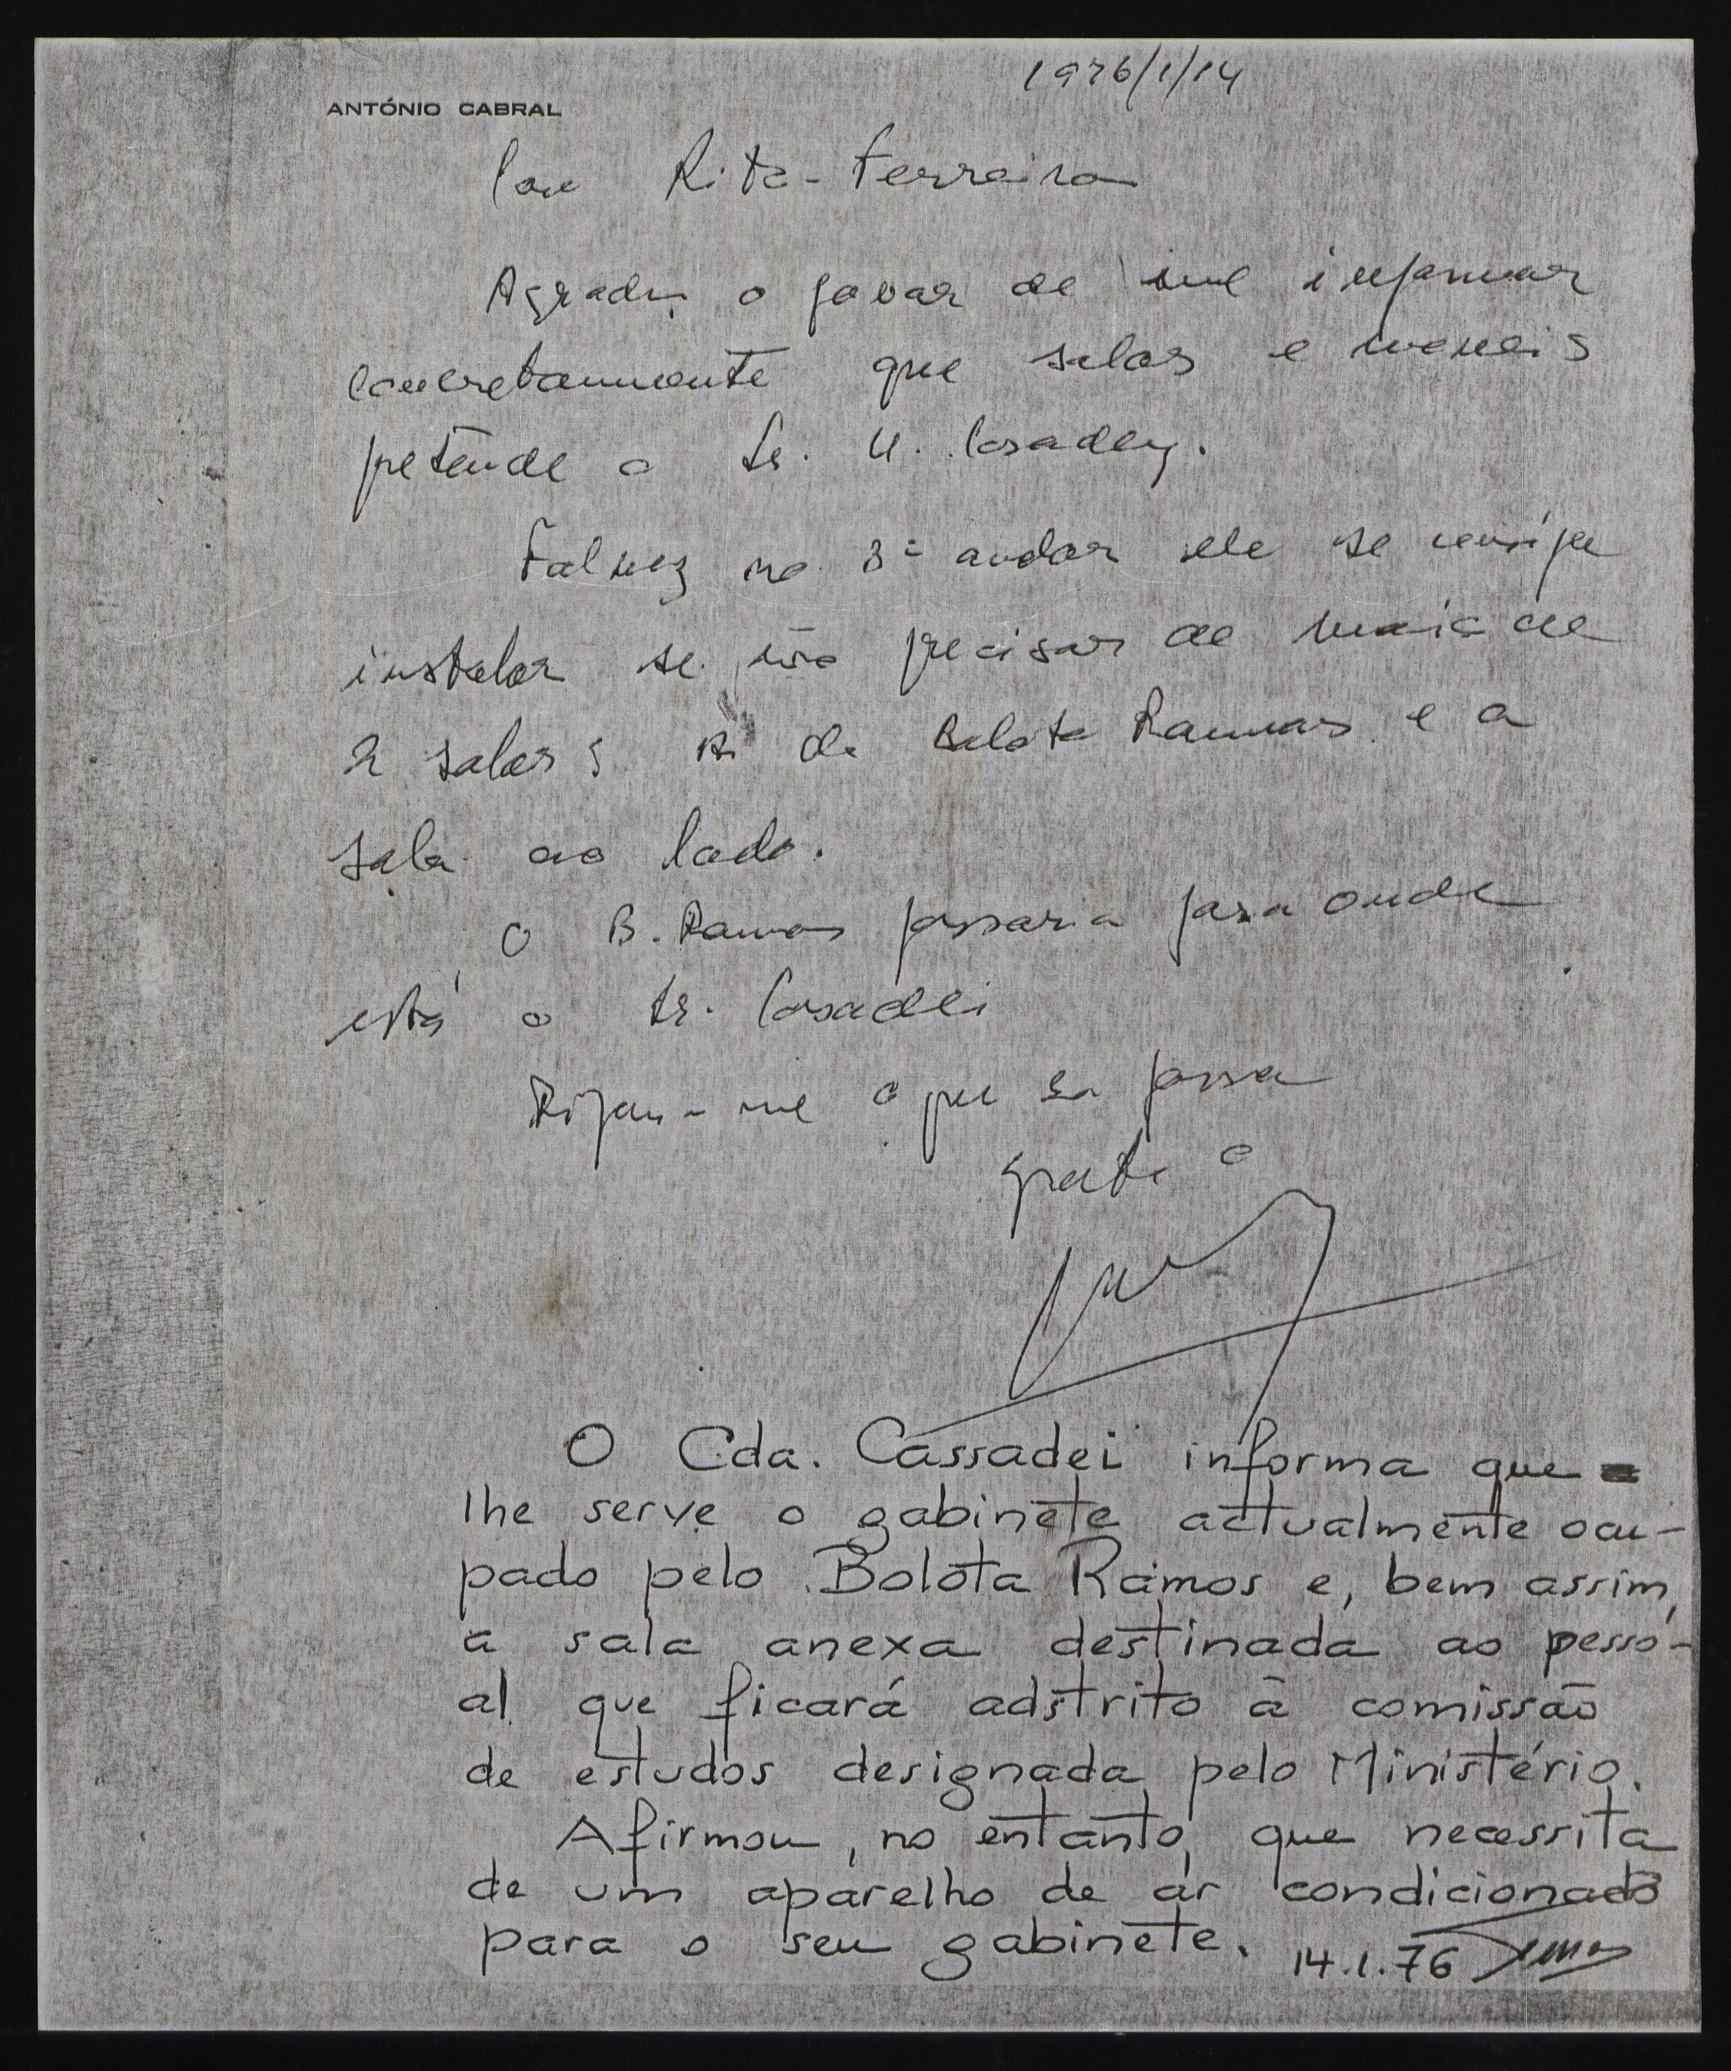 1976/1/14
ANTÓNIO CABRAL
Caro Rita-Ferreira
Agradeço o favor de me informar
concretamente que salas e moveis
pretende o Sr. U. Casadey.
Talvez no 3º andar ele se consiga
instalar se não precisar de mais de
2 salas; a do Bolota Ramos e a
sala ao lado.
O B. Ramos passaria para onde
está o Sr. Casadei
Digam-me o que se passa
grato
O Cda. Cassadei informa que
lhe serve o gabinete actualmente ocu-
pado pelo Bolota Ramos e, bem assim,
a sala anexa destinada ao pesso-
al que ficará adstrito à comissão
de estudos designada pelo Ministério.
Afirmou, no entanto, que necessita
de um aparelho de ar condicionado
para o seu gabinete. 14.1.76